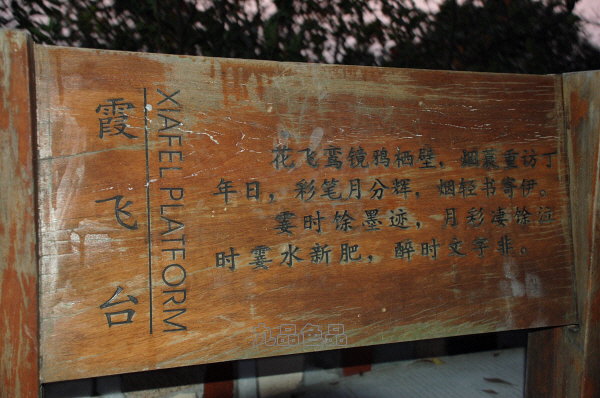 霞飞台
XIAFEI PLATFORM
花飞鸾镜鸦栖壁，烟幕重访丁
年日，彩笔月分辉，烟轻书寄伊。
霎时馀墨迹，月彩凄馀泣
时霎水新肥，醉时文字非。